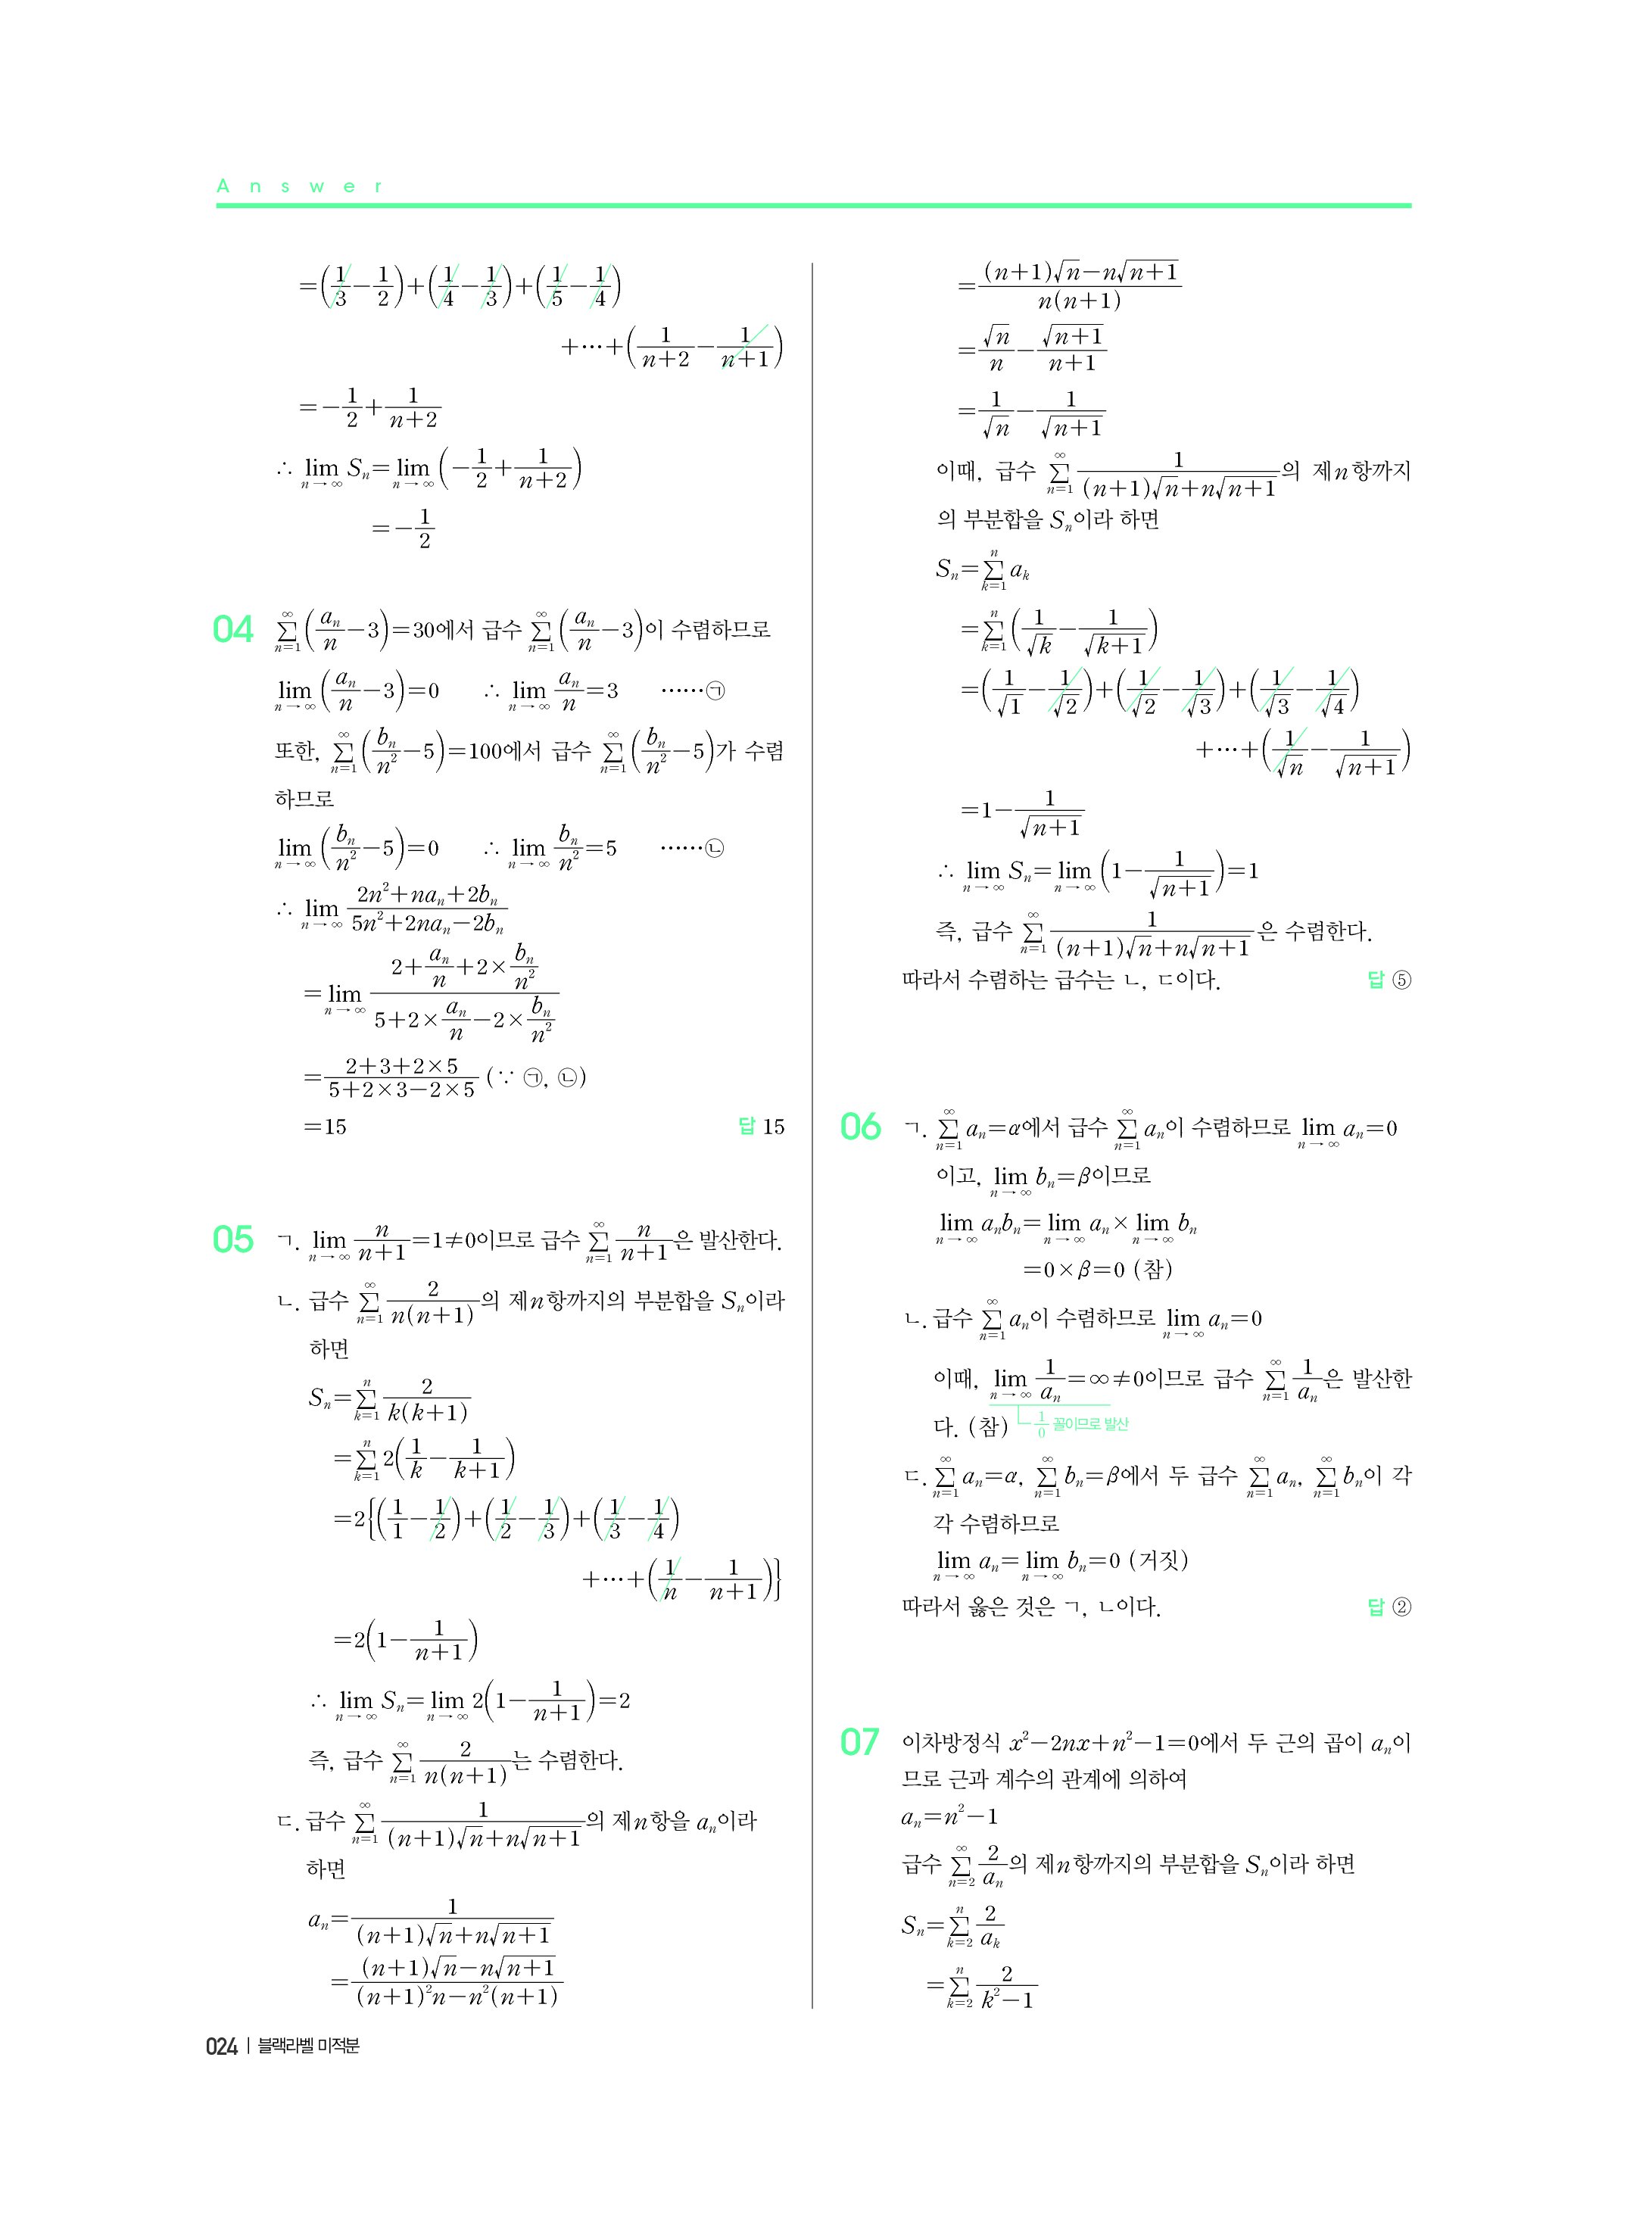 Answer
=(1/3-1/2)+(1/4-1/3)+(1/5-1/4)
+⋯+(1/(n+2)-1/(n+1))
=-1/2+1/(n+2)
∴ lim_{n→∞} Sₙ=lim_{n→∞} (-1/2+1/(n+2))
=-1/2
04 ∑_{n=1}^{∞} (aₙ/n-3)=30에서 급수 ∑_{n=1}^{∞} (aₙ/n-3)이 수렴하므로
lim_{n→∞} (aₙ/n-3)=0 ∴ lim_{n→∞} aₙ/n=3 ⋯⋯㉠
또한, ∑_{n=1}^{∞} (bₙ/n²-5)=100에서 급수 ∑_{n=1}^{∞} (bₙ/n²-5)가 수렴
하므로
lim_{n→∞} (bₙ/n²-5)=0 ∴ lim_{n→∞} bₙ/n²=5 ⋯⋯㉡
∴ lim_{n→∞} (2n²+naₙ+2bₙ)/(5n²+2naₙ-2bₙ)
=lim_{n→∞} (2+aₙ/n+2×bₙ/n²)/(5+2×aₙ/n-2×bₙ/n²)
=(2+3+2×5)/(5+2×3-2×5) (∵ ㉠, ㉡)
=15 답 15
05 ㄱ. lim_{n→∞} n/(n+1)=1≠0이므로 급수 ∑_{n=1}^{∞} n/(n+1)은 발산한다.
ㄴ. 급수 ∑_{n=1}^{∞} 2/(n(n+1))의 제n항까지의 부분합을 Sₙ이라
하면
Sₙ=∑_{k=1}^{n} 2/(k(k+1))
=∑_{k=1}^{n} 2(1/k-1/(k+1))
=2{(1/1-1/2)+(1/2-1/3)+(1/3-1/4)
+⋯+(1/n-1/(n+1))}
=2(1-1/(n+1))
∴ lim_{n→∞} Sₙ=lim_{n→∞} 2(1-1/(n+1))=2
즉, 급수 ∑_{n=1}^{∞} 2/(n(n+1))는 수렴한다.
ㄷ. 급수 ∑_{n=1}^{∞} 1/((n+1)√n+n√(n+1))의 제n항을 aₙ이라
하면
aₙ=1/((n+1)√n+n√(n+1))
=((n+1)√n-n√(n+1))/((n+1)²n-n²(n+1))
=((n+1)√n-n√(n+1))/(n(n+1))
=√n/n-√(n+1)/(n+1)
=1/√n-1/√(n+1)
이때, 급수 ∑_{n=1}^{∞} 1/((n+1)√n+n√(n+1))의 제n항까지
의 부분합을 Sₙ이라 하면
Sₙ=∑_{k=1}^{n} aₖ
=∑_{k=1}^{n} (1/√k-1/√(k+1))
=(1/√1-1/√2)+(1/√2-1/√3)+(1/√3-1/√4)
+⋯+(1/√n-1/√(n+1))
=1-1/√(n+1)
∴ lim_{n→∞} Sₙ=lim_{n→∞} (1-1/√(n+1))=1
즉, 급수 ∑_{n=1}^{∞} 1/((n+1)√n+n√(n+1))은 수렴한다.
따라서 수렴하는 급수는 ㄴ, ㄷ이다. 답 ⑤
06 ㄱ. ∑_{n=1}^{∞} aₙ=α에서 급수 ∑_{n=1}^{∞} aₙ이 수렴하므로 lim_{n→∞} aₙ=0
이고, lim_{n→∞} bₙ=β이므로
lim_{n→∞} aₙbₙ=lim_{n→∞} aₙ×lim_{n→∞} bₙ
=0×β=0 (참)
ㄴ. 급수 ∑_{n=1}^{∞} aₙ이 수렴하므로 lim_{n→∞} aₙ=0
이때, lim_{n→∞} 1/aₙ=∞≠0이므로 급수 ∑_{n=1}^{∞} 1/aₙ은 발산한
다. (참) 1/0 꼴이므로 발산
ㄷ. ∑_{n=1}^{∞} aₙ=α, ∑_{n=1}^{∞} bₙ=β에서 두 급수 ∑_{n=1}^{∞} aₙ, ∑_{n=1}^{∞} bₙ이 각
각 수렴하므로
lim_{n→∞} aₙ=lim_{n→∞} bₙ=0 (거짓)
따라서 옳은 것은 ㄱ, ㄴ이다. 답 ②
07 이차방정식 x²-2nx+n²-1=0에서 두 근의 곱이 aₙ이
므로 근과 계수의 관계에 의하여
aₙ=n²-1
급수 ∑_{n=2}^{∞} 2/aₙ의 제n항까지의 부분합을 Sₙ이라 하면
Sₙ=∑_{k=2}^{n} 2/aₖ
=∑_{k=2}^{n} 2/(k²-1)
024 | 블랙라벨 미적분